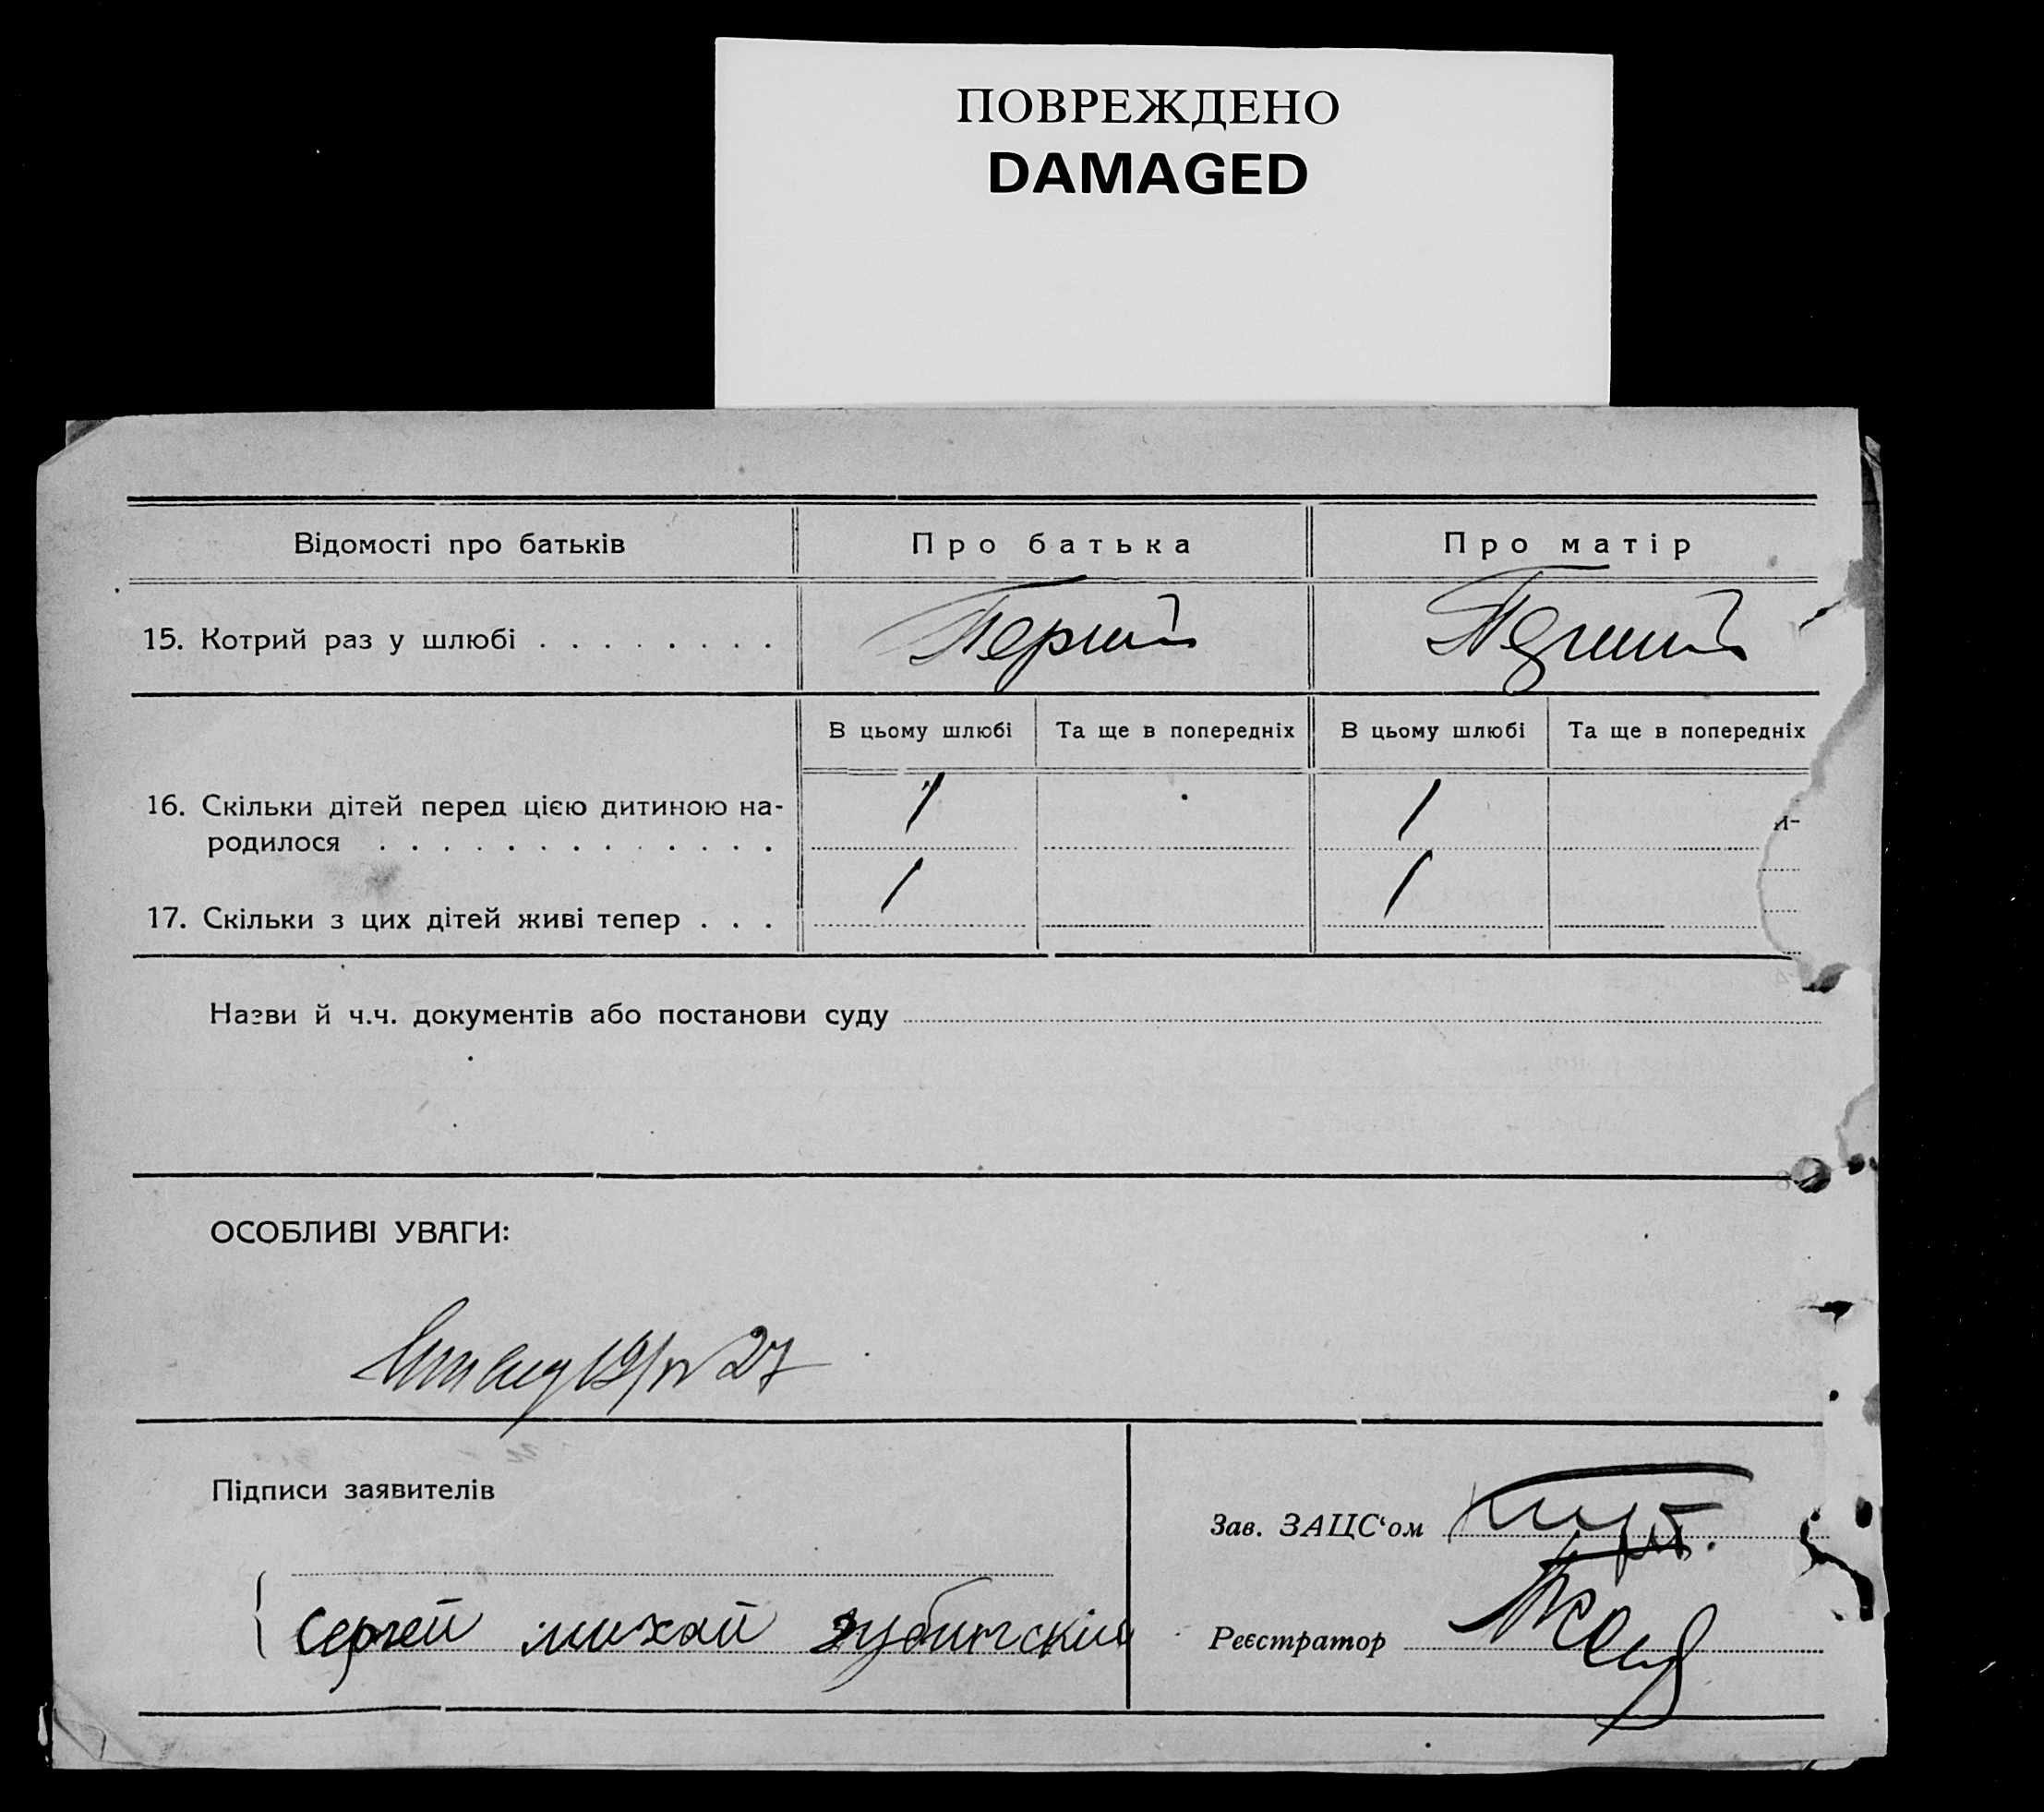 ПОВРЕЖДЕНО
DAMAGED
Відомості про батьків Про батька Про матір
15. Котрий раз у шлюбі . . . . . . . . Перший Перший
В цьому шлюбі Та ще в попередніх В цьому шлюбі Та ще в попередніх
16. Скільки дітей перед цією дитиною на- 1 1
родилося . . . . . . . . . . . . .
17. Скільки з цих дітей живі тепер . . . 1 1
Назви й ч.ч. документів або постанови суду
ОСОБЛИВІ УВАГИ:
27
Підписи заявителів
Зав. ЗАЦС‘ом
сергей михай
Реєстратор